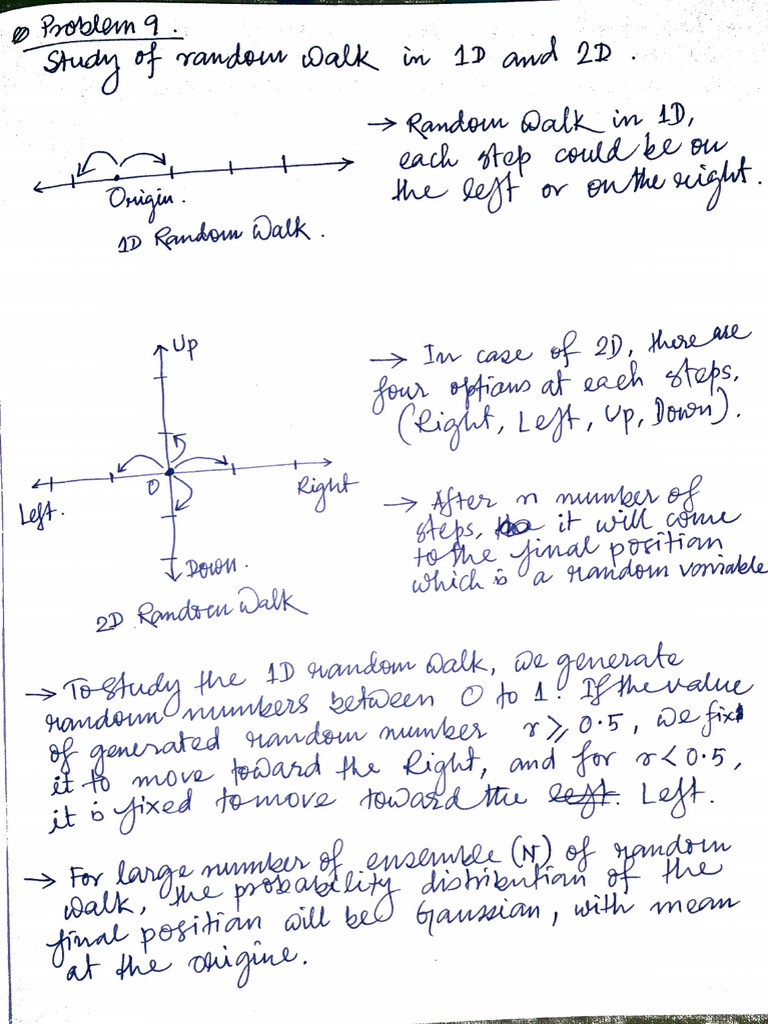 Problem 9.
Study of random Walk in 1D and 2D.
→ Random Walk in 1D,
each step could be on
the left or on the right.
Origin.
1D Random Walk.
Up
→ In case of 2D, there are
four options at each steps.
(Right, Left, Up, Down).
O
Left.
Right
Down.
2D Random Walk
→ After n number of
steps, it will come
to the final position
which is a random variable
→ To study the 1D random walk, we generate
random numbers between 0 to 1. If the value
of generated random number r ⩾ 0.5, we fix
it to move toward the Right, and for r < 0.5,
it is fixed to move toward the left. Left.
→ For large number of ensemble (N) of random
walk, the probability distribution of the
final position will be Gaussian, with mean
at the origine.